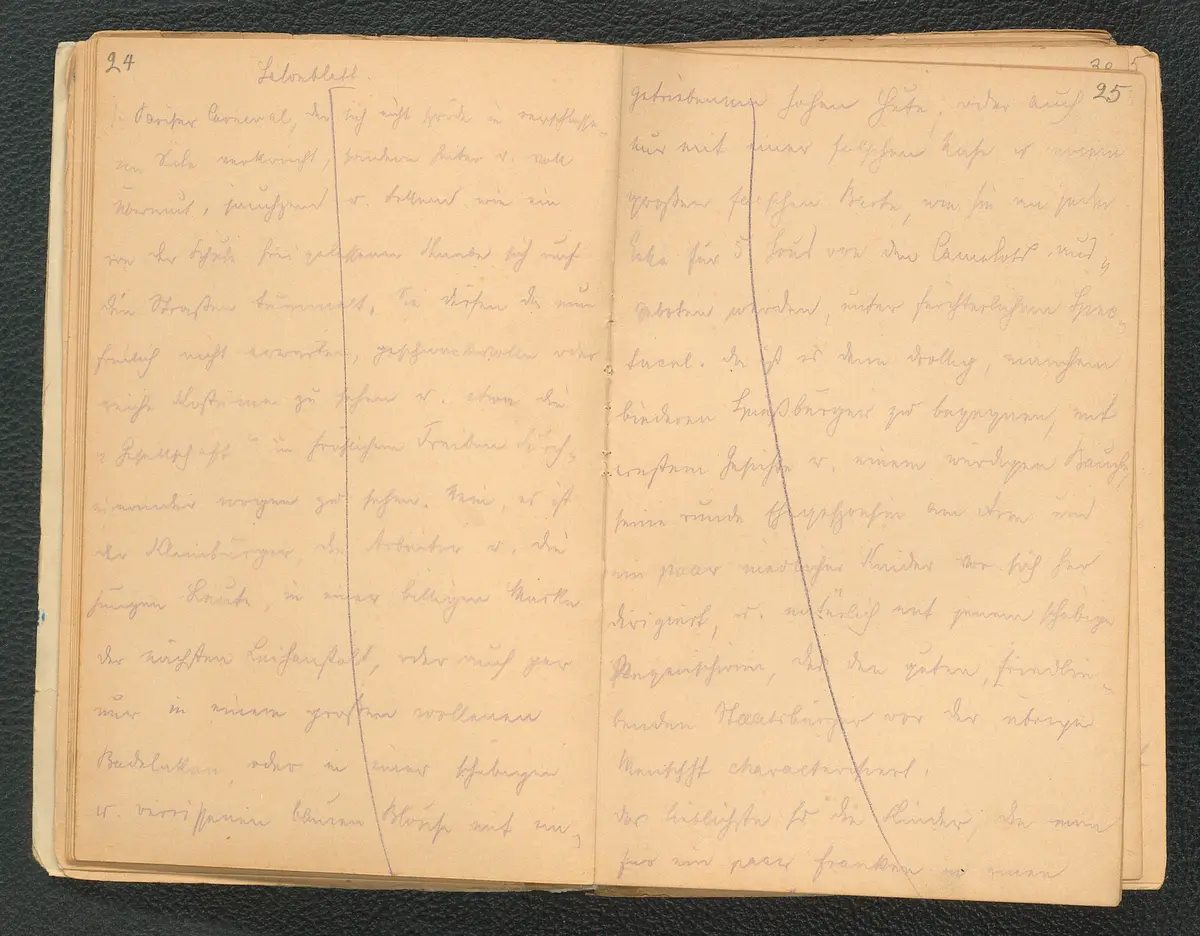 24
Salonblatt.
Pariser Carneval, der sich nicht grade in verschlosse-
ne Säle verkriecht, sondern heiter u. voll
Übermut, jauchzend u. tollend wie ein
von der Schule frei gelassener Knabe sich auf
den Straßen tummelt. Sie dürfen da nun
freilich nicht erwarten, geschmackvolle oder
reiche Kostüme zu sehen u. etwa die
„Gesellschaft“ in fröhlichem Treiben durch-
einander wogen zu sehen. Nein, es ist
der Kleinbürger, die Arbeiter u. die
jungen Leute, in einer billigen Maske
der nächsten Leihanstalt, oder auch gar
nur in einem großen wollenen
Badelaken, oder in einer schäbigen
u. zerrissenen blauen Blouse mit ein-
25
getriebenem hohen Hute, oder auch
nur mit einer falschen Nase u. einem
großen falschen Barte, wie sie an jeder
Ecke für 5 Sous von den Camelots aus-
geboten werden, unter fürchterlichem Spec-
takel. Da ist es denn drollig, manchem
biederen Spießbürger zu begegnen, mit
ernstem Gesichte u. einem würdigen Bauche,
seine runde Ehegesponsin am Arm und
ein paar niedlicher Kinder vor sich her
dirigiert, u. natürlich mit jenem schäbigen
Regenschirm, der den guten, friedlie-
benden Staatsbürger vor der übrigen
Menschht characterisiert.
Das lieblichste sd die Kinder, die man
für ein paar Franken in einen